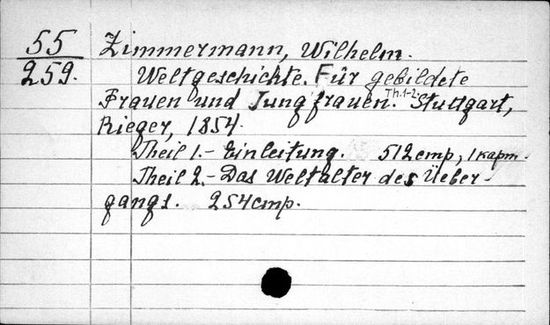 55 Zimmermann, Wilhelm.
259. Weltgeschichte. Für gebildete
Frauen und Jungfrauen. Th. 1-2. Stuttgart,
Rieger, 1854.
Theil 1.- Einleitung. 512 стр., 1 карт.
Theil 2.- Das Weltalter des Ueber-
gangs. 254 стр.